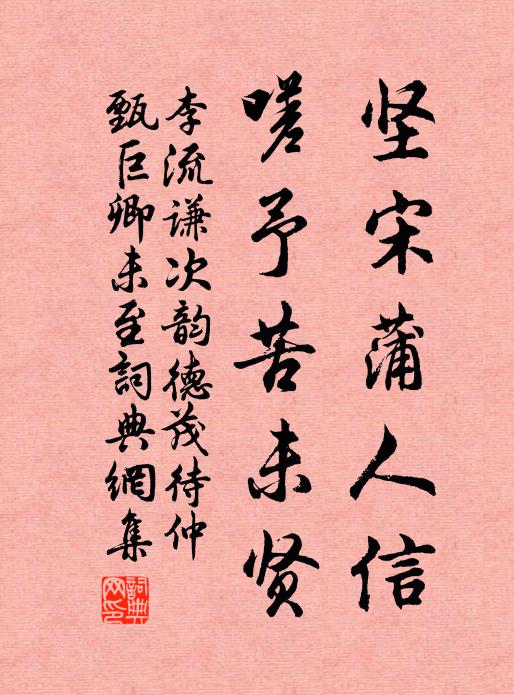 坚宋蒲人信
嗟予苦未贤
李流谦次韵德茂待仲
甄巨卿未至詞典網集
詞典网印